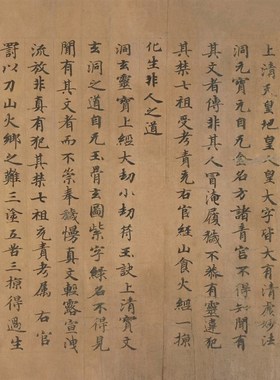 上清天皇地皇人皇大字皆大有清虛妙法
洞元寶元自无金名方諸青宮不得知聞有
其文者傳非其人冒淹履穢不恭有靈違犯
其禁七祖受考責充右官經山食火經一掠
化生非人之道
洞玄靈寶上經大劫小劫符玉訣上清寶文
玄洞之道自无玉骨玄圖紫字綠名不得見
聞有其文者而不崇奉毀慢真文輕露宣洩
流放非真有犯其禁七祖充責考屬右官
罰以刀山火鄉之難三塗五苦三掠得過生